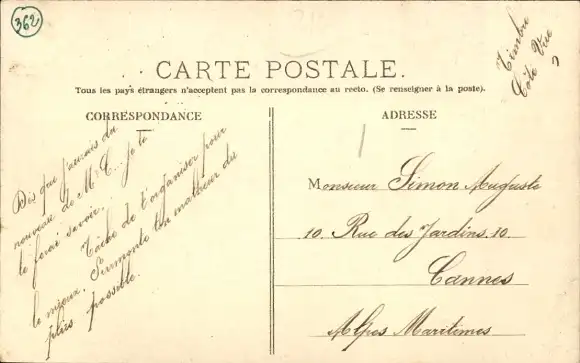 362
Timbre
Côté Vue
CARTE POSTALE.
Tous les pays étrangers n'acceptent pas la correspondance au recto. (Se renseigner à la poste).
CORRESPONDANCE
Dès que j'aurais du
nouveau de Mr C... je te
le ferai savoir.
Tâche de t'organiser pour
le mieux. Surmonte ton malheur du
plus possible.
ADRESSE
Monsieur Simon Auguste
10. Rue des Jardins. 10.
Cannes
Alpes Maritimes